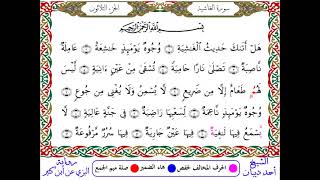 سورة الغاشية الجزء الثلاثون
بِسْمِ ٱللَّهِ ٱلرَّحْمَٰنِ ٱلرَّحِيمِ
هَلْ أَتَىٰكَ حَدِيثُ ٱلْغَٰشِيَةِ ۝ وُجُوهٌ يَوْمَئِذٍ خَٰشِعَةٌ ۝ عَامِلَةٌ
نَّاصِبَةٌ ۝ تَصْلَىٰ نَارًا حَامِيَةً ۝ تُسْقَىٰ مِنْ عَيْنٍ ءَانِيَةٍ ۝ لَّيْسَ
لَهُمُۥ طَعَامٌ إِلَّا مِن ضَرِيعٍ ۝ لَّا يُسْمِنُ وَلَا يُغْنِي مِن جُوعٍ ۝
وُجُوهٌ يَوْمَئِذٍ نَّاعِمَةٌ ۝ لِّسَعْيِهَا رَاضِيَةٌ ۝ فِي جَنَّةٍ عَالِيَةٍ ۝ لَّا
تَسْمَعُ فِيهَا لَٰغِيَةً ۝ فِيهَا عَيْنٌ جَارِيَةٌ ۝ فِيهَا سُرُرٌ مَّرْفُوعَةٌ ۝
الشيخ أحمد ديبان
الحرف المخالف لحفص هاء الضمير صلة ميم الجمع
رواية البزي عن ابن كثير